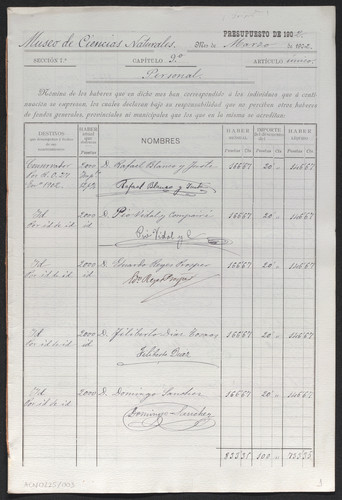 PRESUPUESTO DE 1902
Museo de Ciencias Naturales. Mes de Marzo de 1902.
SECCIÓN 7.ª CAPÍTULO 9.º ARTÍCULO único.
Personal
Nómina de los haberes que en dicho mes han correspondido á los individuos que á conti-
nuación se expresan, los cuales declaran bajo su responsabilidad que no perciben otros haberes
de fondos generales, provinciales ni municipales que los que en la misma se acreditan.
DESTINOS HABER anual NOMBRES HABER mensual. IMPORTE HABER líquido.
Pesetas Pesetas Cts. Pesetas Cts. Pesetas Cts.
Conservador 2000 D. Rafael Blanco y Juste 166 67 20 " 146 67
Por R. O. 27
Enº 1902. Rafael Blanco y Juste
Id. 2000 D. Pio Vidal y Compairé 166 67 20 " 146 67
Por id. id. id. id. Pio Vidal y C.
Id. 2000 D. Eduardo Reyes Prosper 166 67 20 " 146 67
Por id. de id. id.
Id. 2000 D. Filiberto Diaz 166 67 20 " 146 67
Por id. de id. id. Filiberto Diaz
Id. 2000 D. Domingo Sanchez 166 67 20 " 146 67
Por id. de id. id. Domingo Sanchez
833 35 100 " 733 35